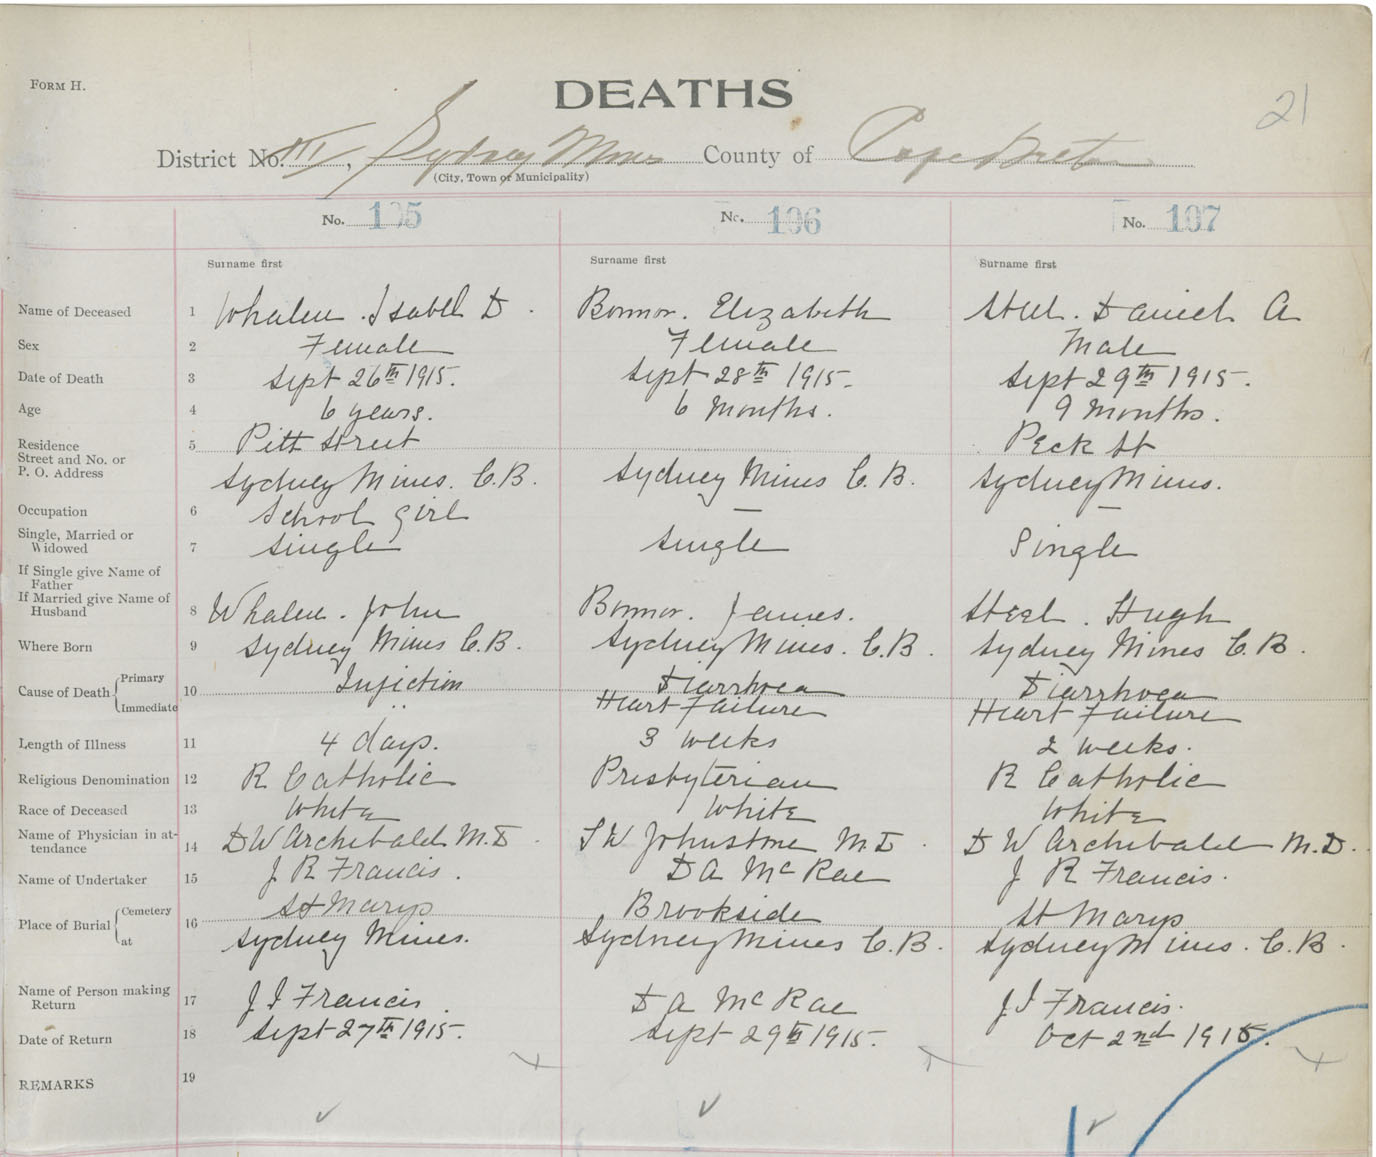 FORM H.
DEATHS
21
District No. III, Sydney Mines County of Cape Breton
(City, Town or Municipality)
No. 105 No. 106 No. 107
Surname first Surname first Surname first
Name of Deceased 1 Whalen. Isabel D. Bonnor. Elizabeth Steel. Daniel A
Sex 2 Female Female Male
Date of Death 3 Sept 26th 1915. Sept 28th 1915. Sept 29th 1915.
Age 4 6 years. 6 Months. 9 Months.
Residence 5 Pitt Street Peck St
Street and No. or
P. O. Address Sydney Mines. C.B. Sydney Mines C.B. Sydney Mines.
Occupation 6 School Girl — —
Single, Married or
Widowed 7 Single Single Single
If Single give Name of
Father
If Married give Name of
Husband 8 Whalen. John Bonnor. James. Steel. Hugh
Where Born 9 Sydney Mines C.B. Sydney Mines. C.B. Sydney Mines C.B.
Cause of Death Primary 10 Infection Diarrhoea Diarrhoea
Immediate " Heart Failure Heart Failure
Length of Illness 11 4 days. 3 weeks 2 weeks.
Religious Denomination 12 R Catholic Presbyterian R Catholic
Race of Deceased 13 White White White
Name of Physician in at-
tendance 14 D W Archibald M.D. S W Johnstone M.D. D W Archibald M.D.
Name of Undertaker 15 J R Francis. D A McRae J R Francis.
Place of Burial Cemetery 16 St Marys Brookside St Marys
at Sydney Mines. Sydney Mines C.B. Sydney Mines. C.B.
Name of Person making
Return 17 J I Francis D A McRae J I Francis.
Date of Return 18 Sept 27th 1915. Sept 29th 1915. Oct 2nd 1915.
REMARKS 19